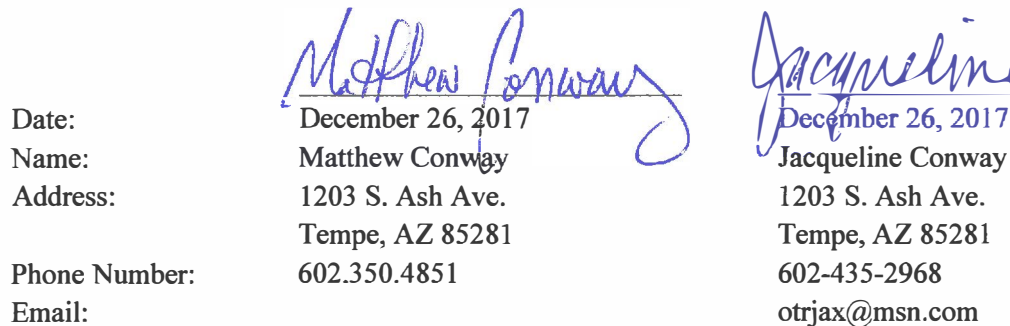 Matthew Conway Jacqueline
Date: December 26, 2017 December 26, 2017
Name: Matthew Conway Jacqueline Conway
Address: 1203 S. Ash Ave. 1203 S. Ash Ave.
Tempe, AZ 85281 Tempe, AZ 85281
Phone Number: 602.350.4851 602-435-2968
Email: otrjax@msn.com